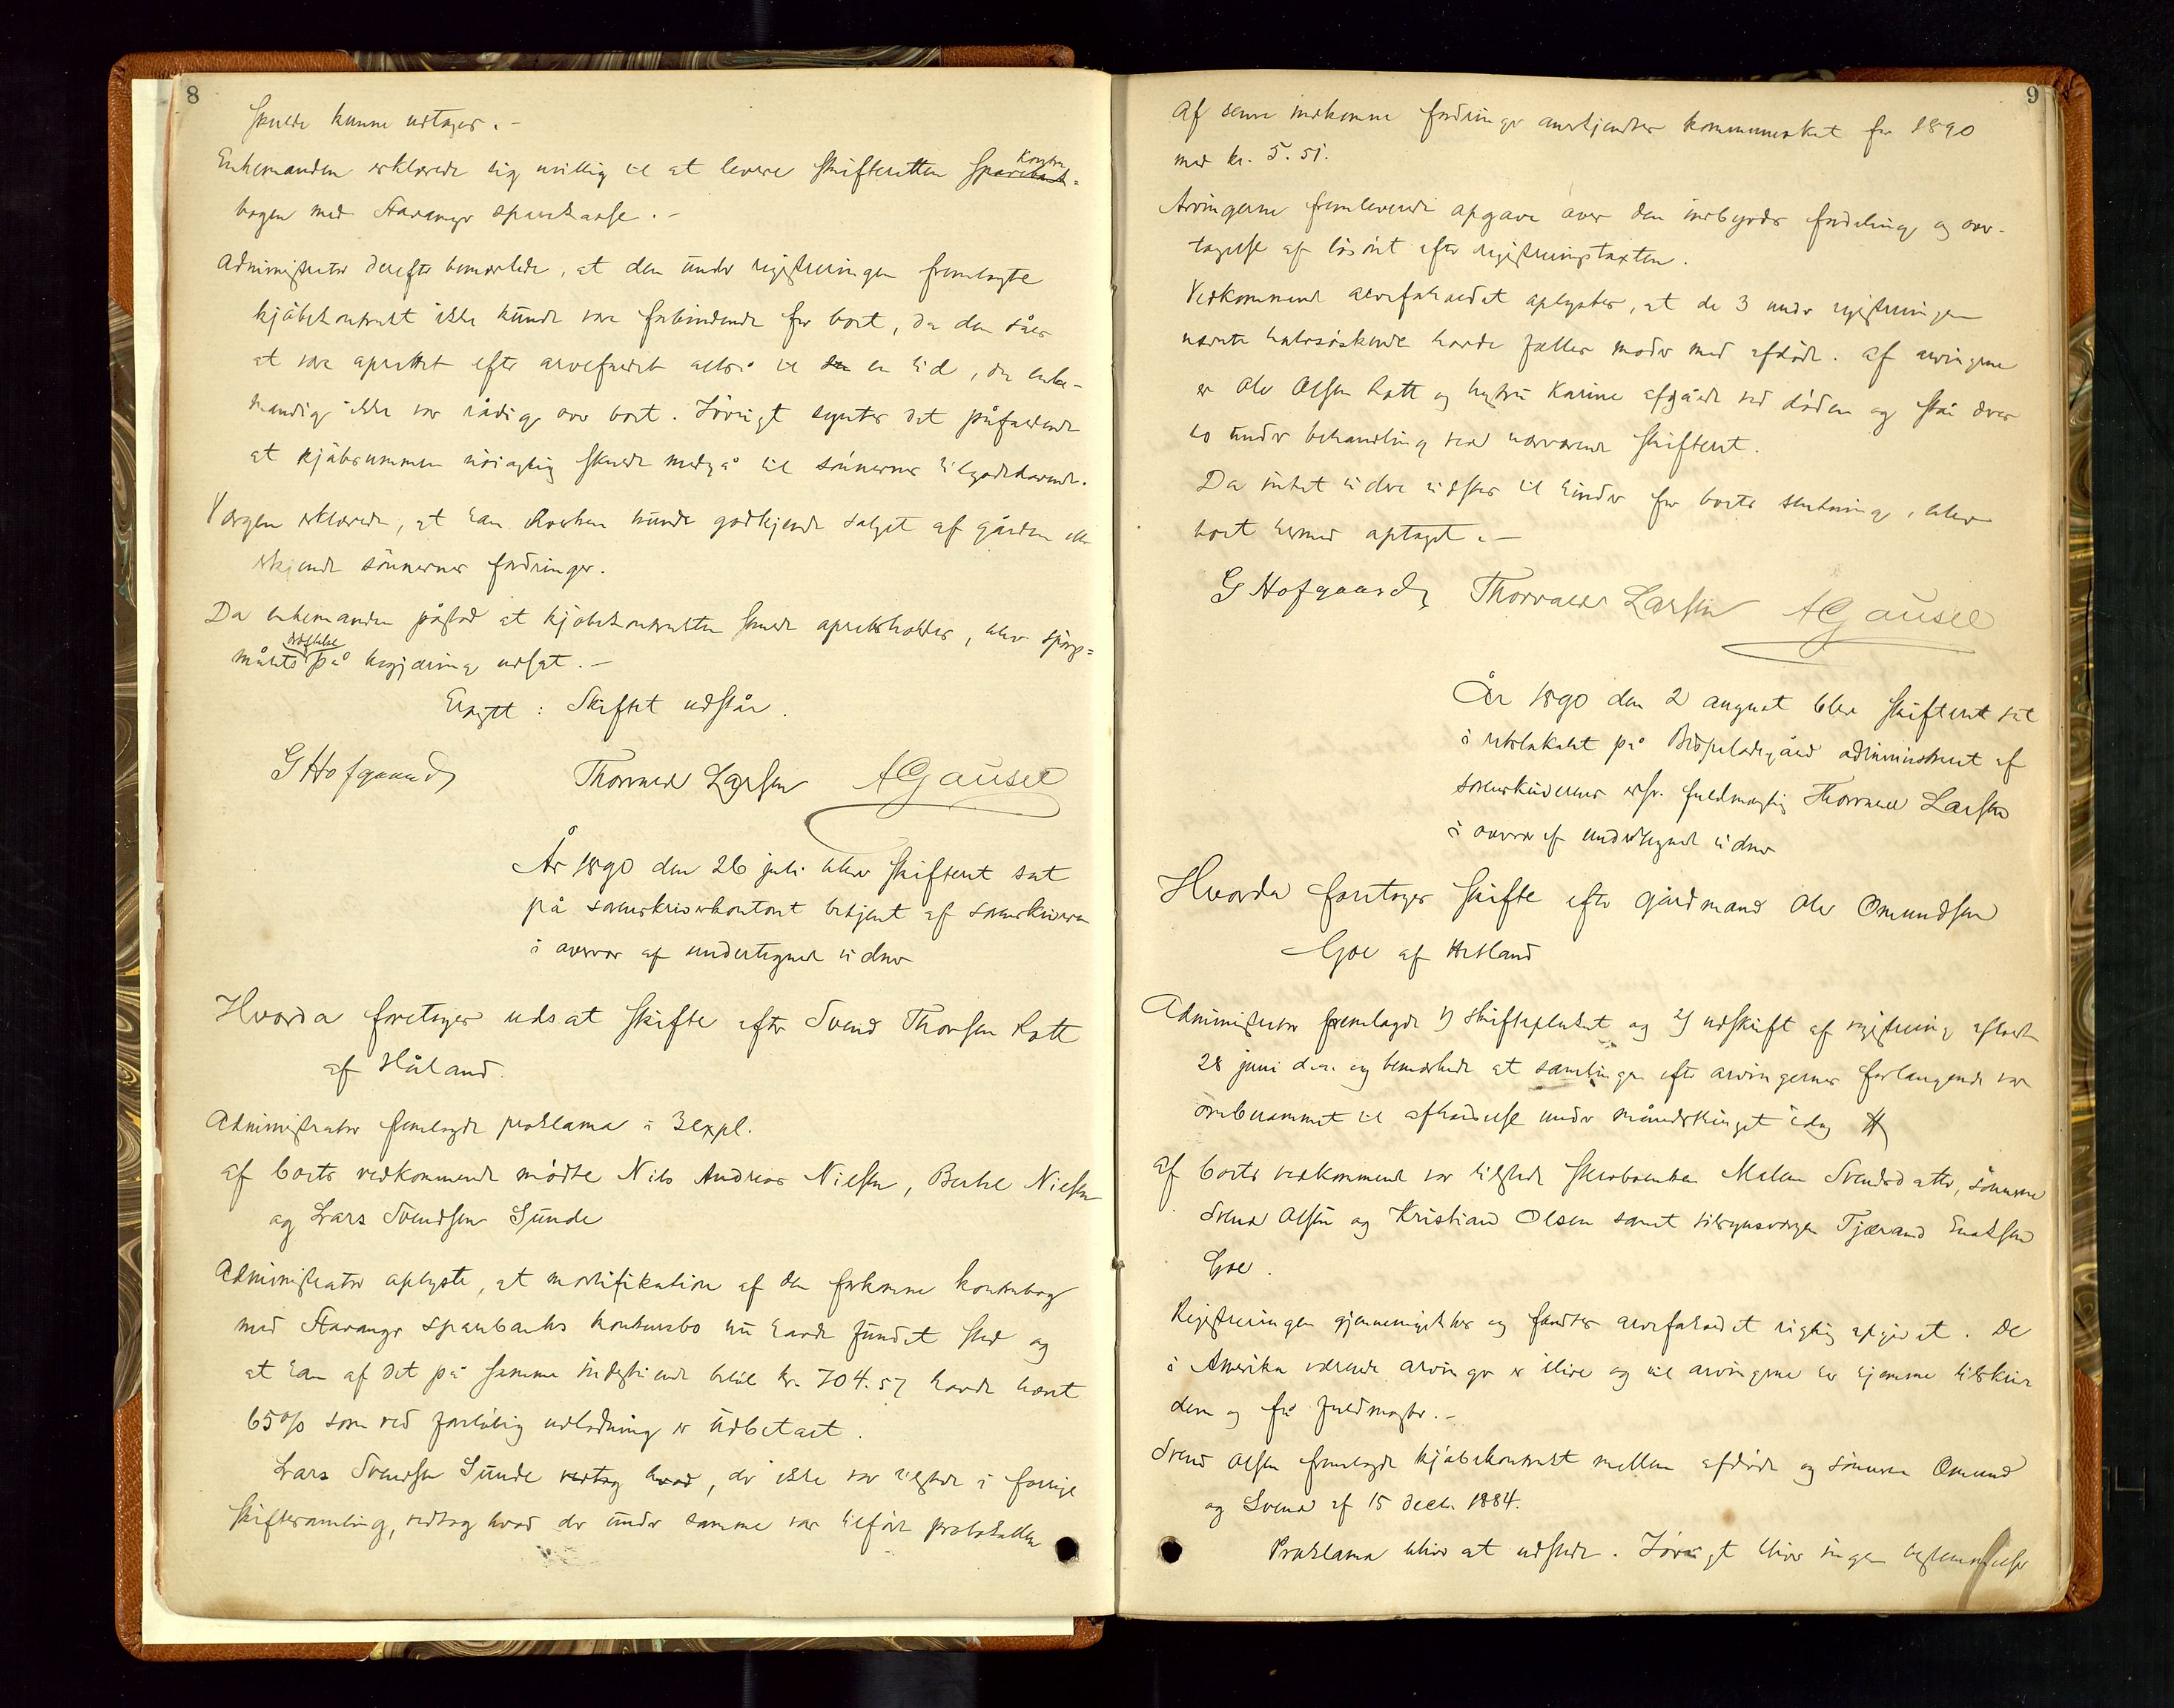 8
skulde kunne udtages. -
Enkemanden erklærede sig villig til at levere skifteretten Sparebank= Kontra
bogen med Stavanger sparekasse. -
Administrator derefter bemærkede, at den under registreringen fremlagte
kjøbekontrakt ikke kunde være forbindende for boet, da den såes
at være oprettet efter arvefaldet altså til en tid, da enke-
manden ikke var rådig over boet. Iøvrigt syntes det påfaldende
at kjøbesummen nøiagtig skulde medgå til sønnernes tilgodehavende.
Værgen erklærede, at han hverken kunde godkjende salget af gården eller
erkjende sønnernes fordringer.
Da enkemanden påstod at kjøbekontrakten skulde opretholdes, blev spørgs=
målets drøftelse på begjæring udsat. -
Eragtet: Skiftet udstår.
G Hofgaard Thorvald Larsen A Gausel
År 1890 den 26 juli blev skifteret sat
på sorenskriverkontoret betjent af sorenskriveren
i overvær af undertegnede vidner
Hvorda foretoges udsat skifte efter Svend Thorsen Rott
af Håland.
Administrator fremlagde proklama i 3 expl.
Af boets vedkommende mødte Nils Andreas Nielsen, Bertel Nielsen
og Lars Svendsen Sunde
Administrator oplyste, at mortifikation af den forkomne kontrabog
med Stavanger sparebanks konkursbo nu havde fundet sted og
at han af det på samme indestående beløb kr. 704.57 havde hævet
65% som ved foreløbig udlodning er udbetalt.
Lars Svendsen Sunde vedtog hvad, der ikke var tilstede i forrige
skiftesamling, vedtog hvad der under samme var tilført protokollen
9
Af senere indkomne fordringer anerkjendtes kommuneskat for 1890
med kr. 5.51.
Arvingerne fremleverede opgave over den indbyrdes fordeling og over-
tagelse af løsøret efter registreringstaxten.
Vedkommende arvefaldet oplystes, at de 3 under registreringen
nævnte halvsøskende havde fælles moder med afdøde. Af arvingerne
er Ole Olsen Rott og hustru Karine afgåede ved døden og står deres
bo under behandling ved nærværende skifteret.
Da intet videre vidstes til hinder for boets slutning, blev
boet hermed optaget. -
G Hofgaard Thorvald Larsen A Gausel
År 1890 den 2 august blev skifteret sat
i retslokalet på Bispeladegård administreret af
sorenskriverens edsv. fuldmægtig Thorvald Larsen
i overvær af undertegnede vidner
Hvorda foretoges skifte efter gårdmand Ole Omundsen
Goe af Hetland
Administrator fremlagde 1) skifteplakat og 2) udskrift af registrering afholdt
28 juni d.a. og bemærkede at samlingen efter arvingernes forlangende var
omberammet til afholdelse under månedstinget idag
Af boets vedkommende var tilstede skrøboenken Malene Svendsdatter, sønnerne
Svend Olsen og Kristian Olsen samt tilsynsværgen Tjærand Enoksen
Goe.
Registreringen gjennemgikkes og fandtes arvefaldet rigtig opgivet. De
i Amerika værende arvinger er ilive og vil arvingerne her hjemme tilskrive
dem og få fuldmagter. -
Svend Olsen fremlagde kjøbekontrakt mellem afdøde og sønnerne Omund
og Svend af 15 decbr 1884.
Proklama bliver at udstede. Iøvrigt blev ingen bestemmelser